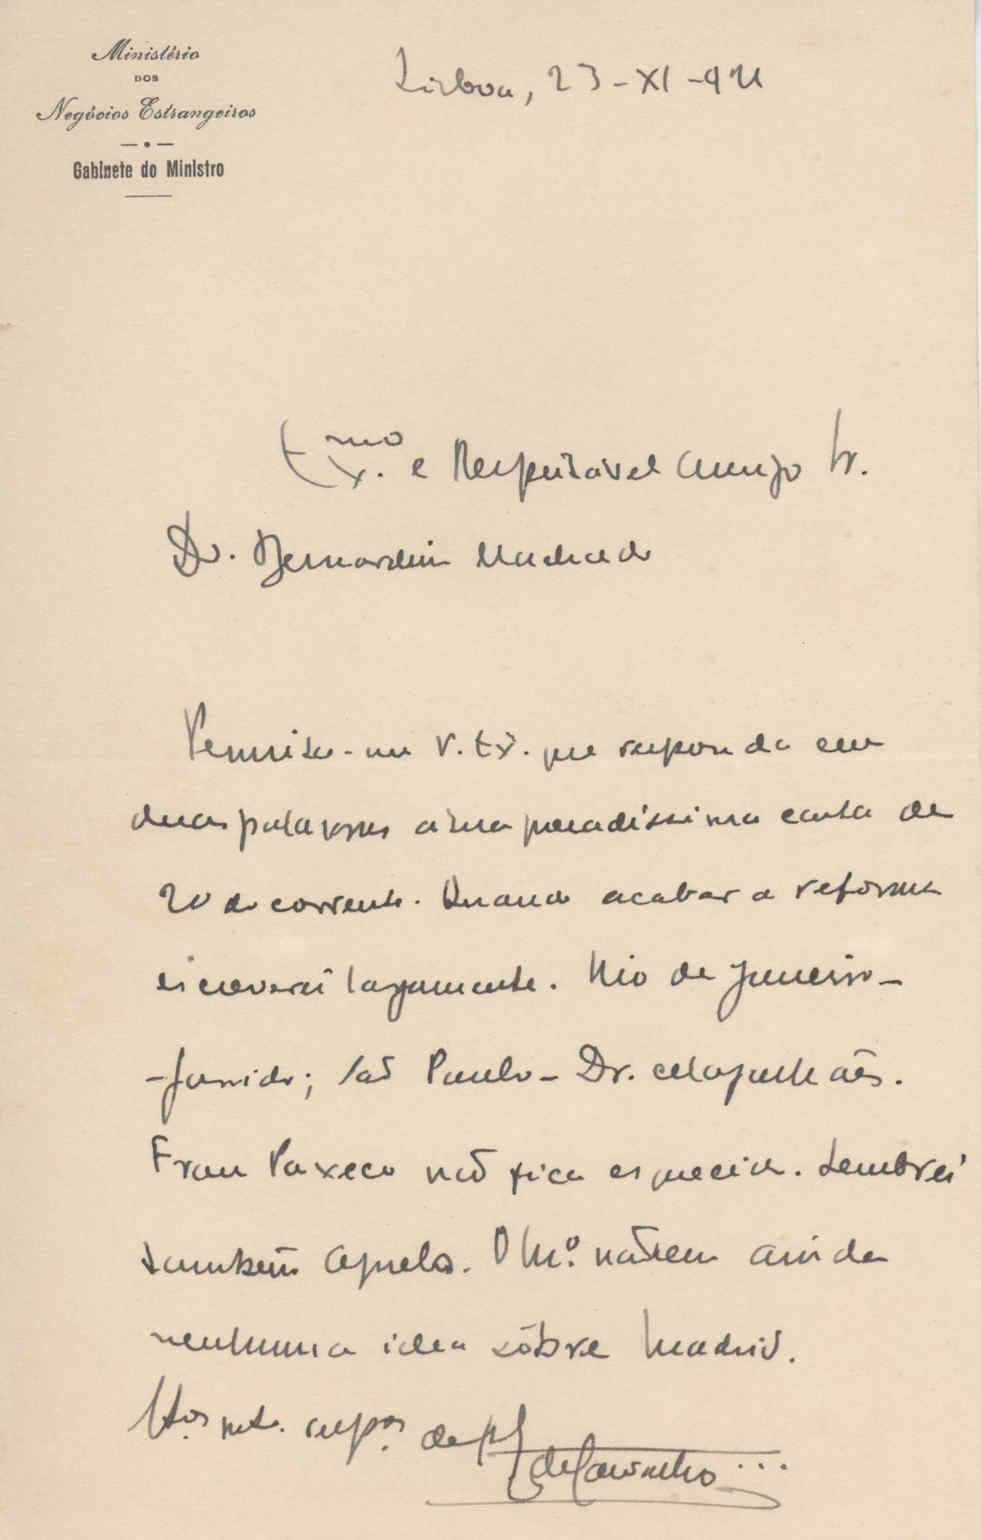 Ministério
DOS
Negócios Estrangeiros
Gabinete do Ministro
Lisboa, 23-XI-911
Ex.mo e Respeitavel Amigo Sr.
Dr. Bernardino Machado
Permita-me V. Ex. que responda em
duas palavras á sua presadissima carta de
20 do corrente. Quando acabar a reforma
escreverei largamente. Rio de Janeiro-
- ; São Paulo - Dr. Magalhães.
Fran Paxeco não fica esquecido. Lembrei
tambem Apuelo. O M.º não tem ainda
nenhuma idea sôbre Madrid.
mto. resp.os de
de Carvalho